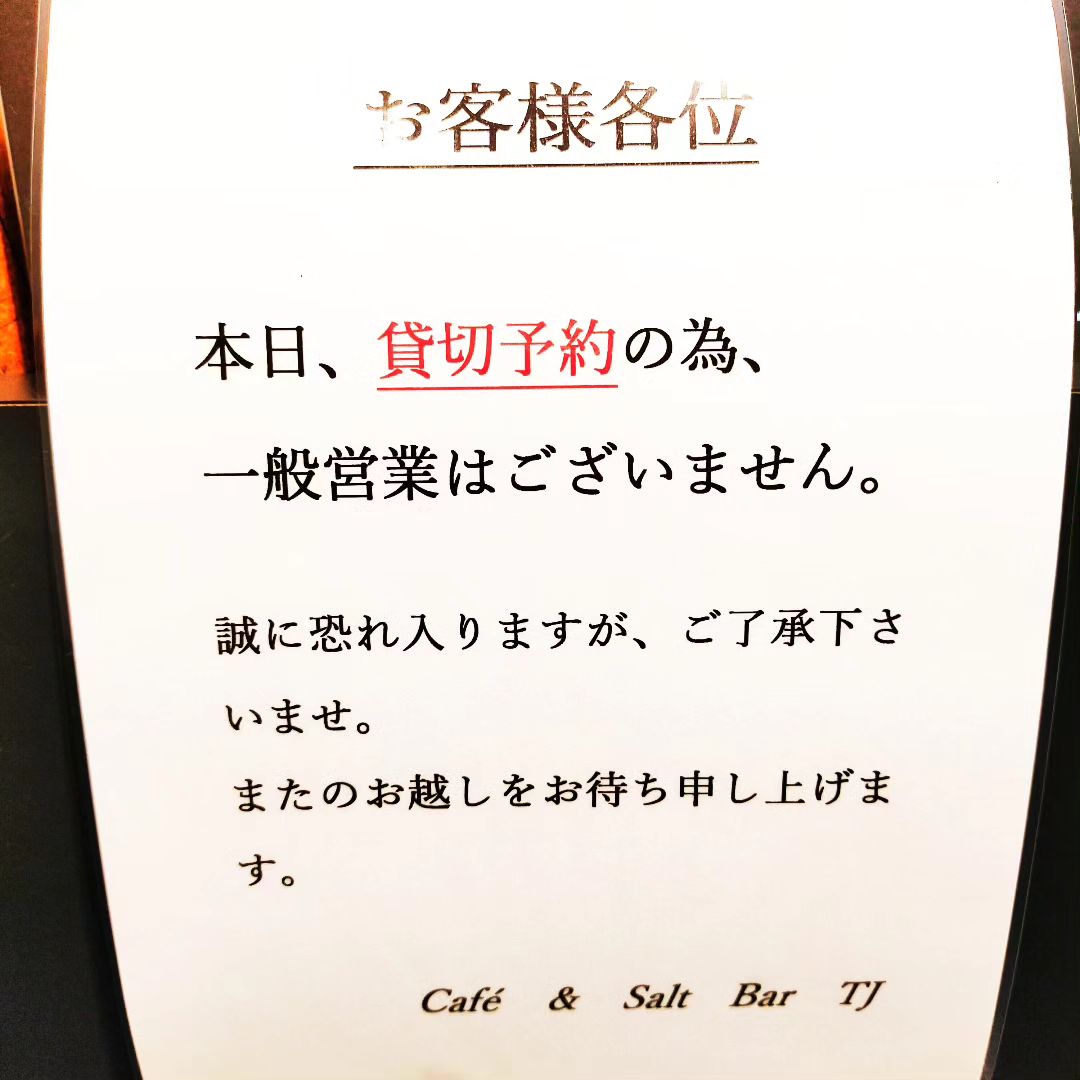 お客様各位
本日、貸切予約の為、
一般営業はございません。
誠に恐れ入りますが、ご了承下さ
いませ。
またのお越しをお待ち申し上げま
す。
Café & Salt Bar TJ